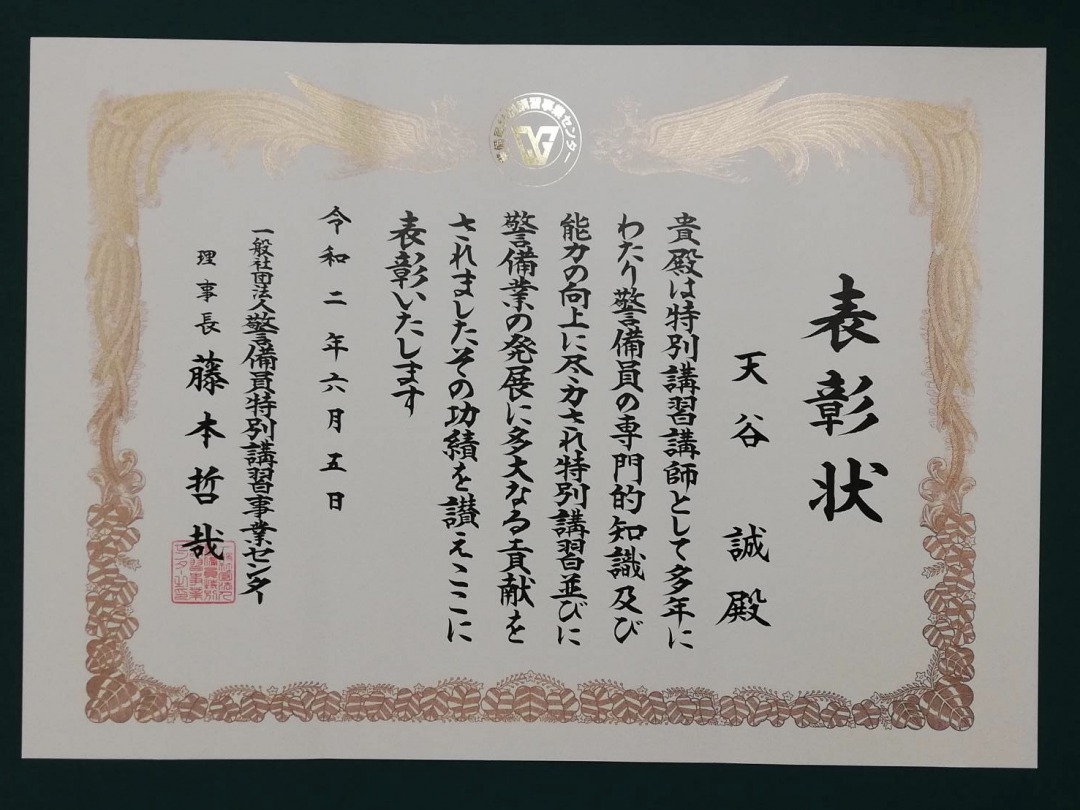 表彰状
天谷 誠 殿
貴殿は特別講習講師として多年に
わたり警備員の専門的知識及び
能力の向上に尽力され特別講習並びに
警備業の発展に多大なる貢献を
されましたその功績を讃えここに
表彰いたします
令和二年六月五日
一般社団法人警備員特別講習事業センター
理事長 藤本哲哉